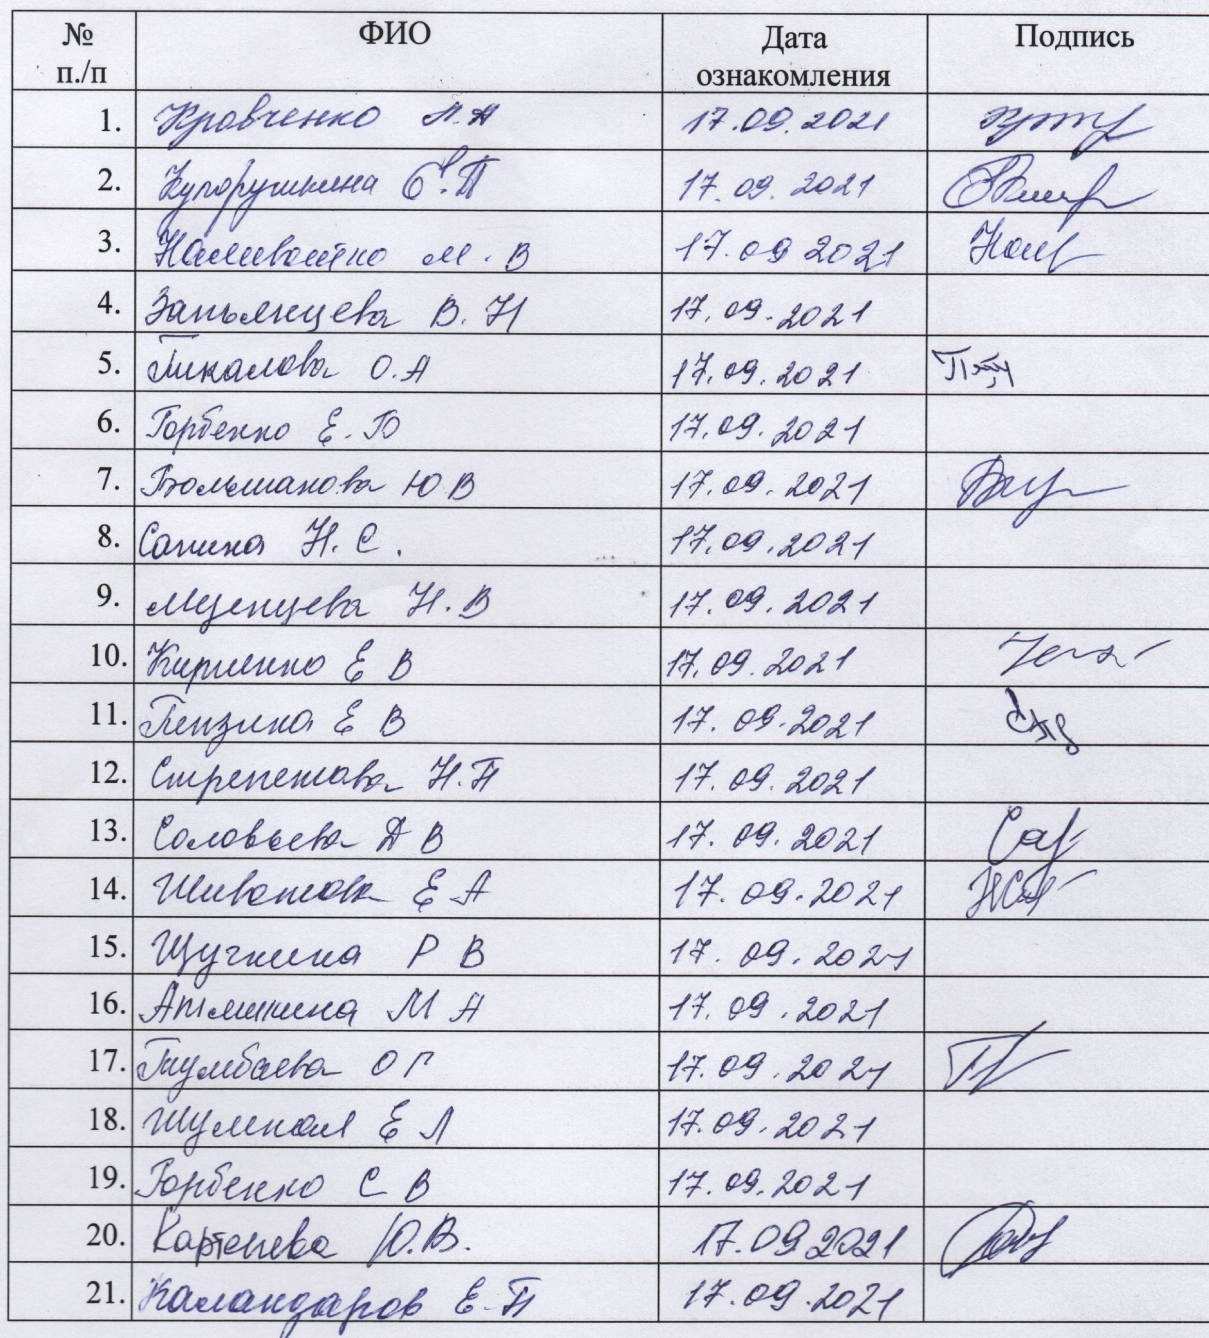 № п./п ФИО Дата ознакомления Подпись
1. Кравченко А.А 17.09.2021
2. Купорушкина Е.П 17.09.2021
3. Наливайко М.В 17.09 2021
4. Запьянцева В.Н 17.09.2021
5. Пикалова О.А 17.09.2021
6. Горбенко Е.Ю 17.09.2021
7. Большакова Ю В 17.09.2021
8. Сапина Н.С. 17.09.2021
9. Н.В 17.09.2021
10. Кириенко Е В 17.09.2021
11. Пензина Е В 17.09.2021
12. Стрепетова Н.П 17.09.2021
13. Соловьева А В 17.09.2021
14. Е А 17.09.2021
15. Щучкина Р В 17.09.2021
16. Атмашкина М А 17.09.2021
17. Тумбаева О Г 17.09.2021
18. Шумская Е Л 17.09.2021
19. Горбенко С В 17.09.2021
20. Ю.В. 17.09 2021
21. Каландаров Е.П 17.09.2021